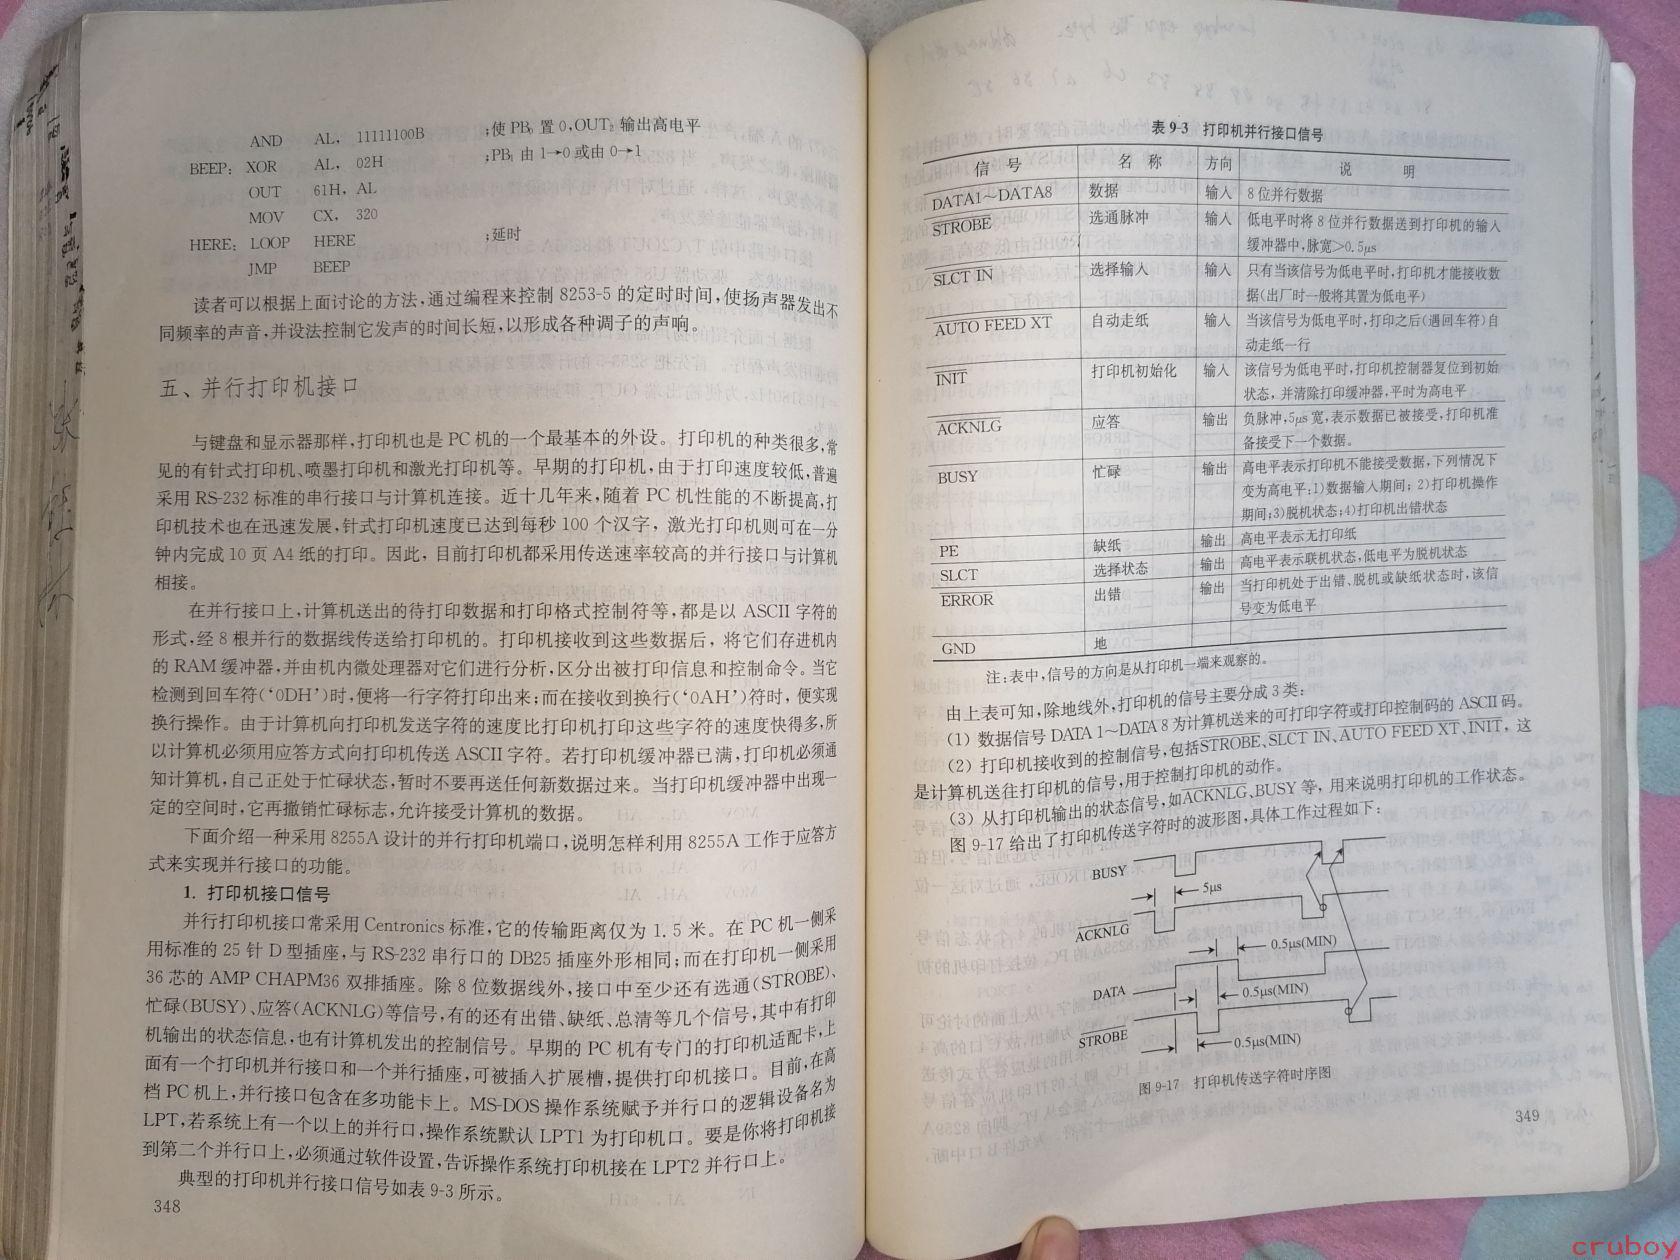 AND AL, 11111100B ;使 PB₀ 置 0,OUT₂ 输出高电平
BEEP: XOR AL, 02H ;PB₁ 由 1→0 或由 0→1
OUT 61H, AL
MOV CX, 320
HERE: LOOP HERE ;延时
JMP BEEP
读者可以根据上面讨论的方法,通过编程来控制 8253-5 的定时时间,使扬声器发出不
同频率的声音,并设法控制它发声的时间长短,以形成各种调子的声响。
五、并行打印机接口
与键盘和显示器那样,打印机也是 PC 机的一个最基本的外设。打印机的种类很多,常
见的有针式打印机、喷墨打印机和激光打印机等。早期的打印机,由于打印速度较低,普遍
采用 RS-232 标准的串行接口与计算机连接。近十几年来,随着 PC 机性能的不断提高,打
印机技术也在迅速发展,针式打印机速度已达到每秒 100 个汉字, 激光打印机则可在一分
钟内完成 10 页 A4 纸的打印。因此, 目前打印机都采用传送速率较高的并行接口与计算机
相接。
在并行接口上,计算机送出的待打印数据和打印格式控制符等, 都是以 ASCII 字符的
形式,经 8 根并行的数据线传送给打印机的。打印机接收到这些数据后, 将它们存进机内
的 RAM 缓冲器,并由机内微处理器对它们进行分析,区分出被打印信息和控制命令。当它
检测到回车符(‘0DH’)时,便将一行字符打印出来;而在接收到换行(‘0AH’)符时, 便实现
换行操作。由于计算机向打印机发送字符的速度比打印机打印这些字符的速度快得多,所
以计算机必须用应答方式向打印机传送 ASCII 字符。若打印机缓冲器已满,打印机必须通
知计算机,自己正处于忙碌状态,暂时不要再送任何新数据过来。当打印机缓冲器中出现一
定的空间时,它再撤销忙碌标志,允许接受计算机的数据。
下面介绍一种采用 8255A 设计的并行打印机端口,说明怎样利用 8255A 工作于应答方
式来实现并行接口的功能。
1. 打印机接口信号
并行打印机接口常采用 Centronics 标准,它的传输距离仅为 1.5 米。在 PC 机一侧采
用标准的 25 针 D 型插座,与 RS-232 串行口的 DB25 插座外形相同;而在打印机一侧采用
36 芯的 AMP CHAPM36 双排插座。除 8 位数据线外,接口中至少还有选通(STROBE)、
忙碌(BUSY)、应答(ACKNLG)等信号,有的还有出错、缺纸、总清等几个信号,其中有打印
机输出的状态信息,也有计算机发出的控制信号。早期的 PC 机有专门的打印机适配卡,上
面有一个打印机并行接口和一个并行插座,可被插入扩展槽,提供打印机接口。目前,在高
档 PC 机上,并行接口包含在多功能卡上。MS-DOS 操作系统赋予并行口的逻辑设备名为
LPT,若系统上有一个以上的并行口,操作系统默认 LPT1 为打印机口。要是你将打印机接
到第二个并行口上,必须通过软件设置,告诉操作系统打印机接在 LPT2 并行口上。
典型的打印机并行接口信号如表 9-3 所示。
348
表 9-3 打印机并行接口信号
信 号 名 称 方向 说 明
DATA1～DATA8 数据 输入 8 位并行数据
STROBE 选通脉冲 输入 低电平时将 8 位并行数据送到打印机的输入
缓冲器中,脉宽>0.5μs
SLCT IN 选择输入 输入 只有当该信号为低电平时,打印机才能接收数
据(出厂时一般将其置为低电平)
AUTO FEED XT 自动走纸 输入 当该信号为低电平时,打印之后(遇回车符)自
动走纸一行
INIT 打印机初始化 输入 该信号为低电平时,打印机控制器复位到初始
状态, 并清除打印缓冲器,平时为高电平
ACKNLG 应答 输出 负脉冲,5μs 宽,表示数据已被接受,打印机准
备接受下一个数据。
BUSY 忙碌 输出 高电平表示打印机不能接受数据,下列情况下
变为高电平:1)数据输入期间; 2)打印机操作
期间;3)脱机状态;4)打印机出错状态
PE 缺纸 输出 高电平表示无打印纸
SLCT 选择状态 输出 高电平表示联机状态,低电平为脱机状态
ERROR 出错 输出 当打印机处于出错、脱机或缺纸状态时,该信
号变为低电平
GND 地
注:表中,信号的方向是从打印机一端来观察的。
由上表可知,除地线外,打印机的信号主要分成 3 类:
(1) 数据信号 DATA 1～DATA 8 为计算机送来的可打印字符或打印控制码的 ASCII 码。
(2) 打印机接收到的控制信号,包括STROBE、SLCT IN、AUTO FEED XT、INIT, 这
是计算机送往打印机的信号,用于控制打印机的动作。
(3) 从打印机输出的状态信号,如ACKNLG、BUSY 等, 用来说明打印机的工作状态。
图 9-17 给出了打印机传送字符时的波形图,具体工作过程如下:
BUSY
5μs
ACKNLG
0.5μs(MIN)
DATA
0.5μs(MIN)
STROBE
0.5μs(MIN)
图 9-17 打印机传送字符时序图
349
cruboy